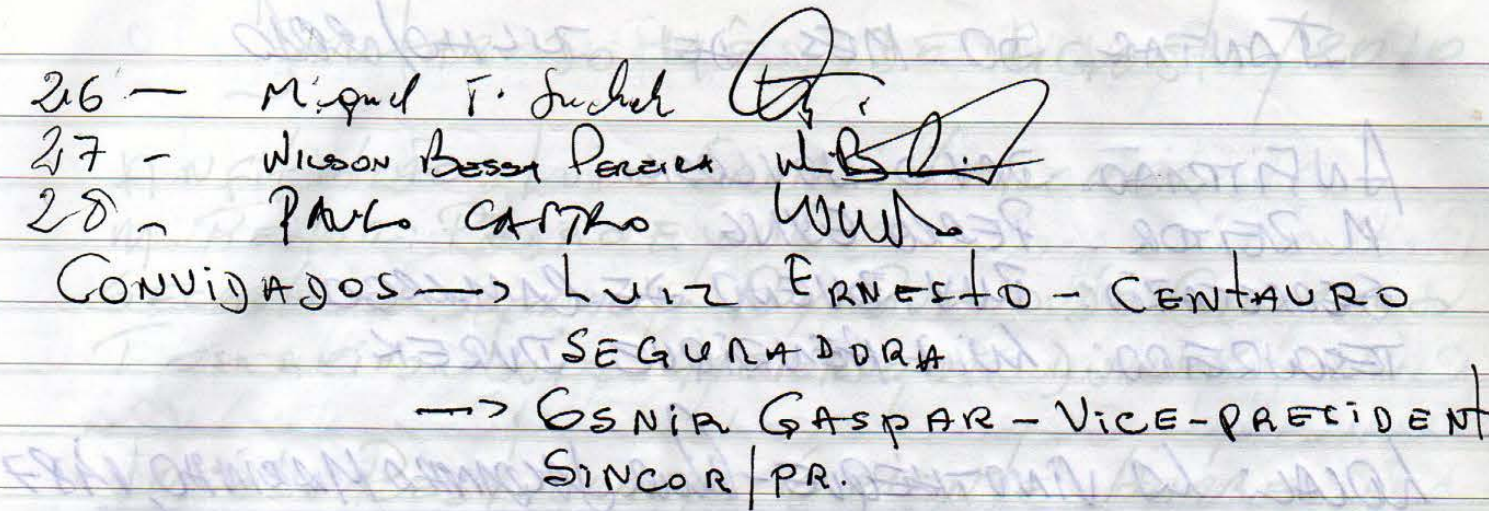 26 - Miguel T.
27 - WILSON BESSA PEREIRA W.B
28 - PAULO CASTRO
CONVIDADOS -> LUIZ ERNESTO - CENTAURO
SEGURADORA
-> OSNIR GASPAR - VICE-PRESIDENT
SINCOR/PR.